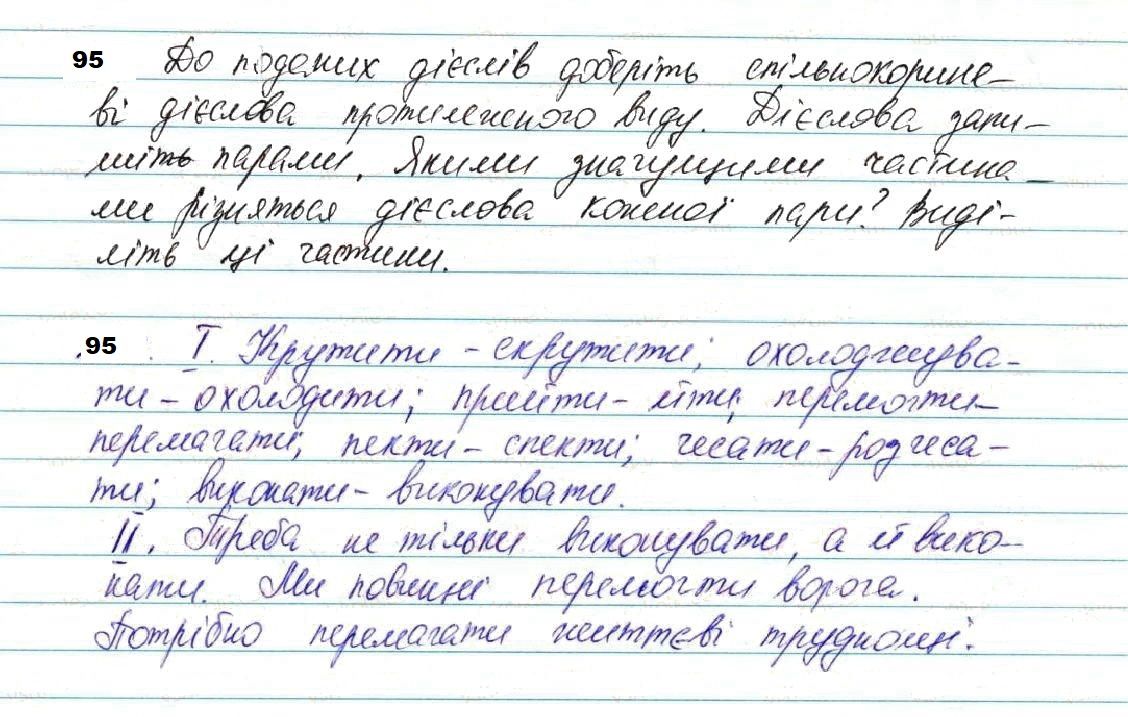 95 До поданих дієслів доберіть спільнокорене-
ві дієслова протилежного виду. Дієслова запи-
шіть парами. Якими значущими частина-
ми різняться дієслова кожної пари? Виді-
літь ці частини.
95 І. Крутити - скрутити; охолоджува-
ти - охолодити; прийти - йти; перемогти -
перемагати; пекти - спекти; чесати - розчеса-
ти; виконати - виконувати.
ІІ. Треба не тільки виконувати, а й вико-
нати. Ми повинні перемогти ворога.
Потрібно перемагати життєві труднощі.